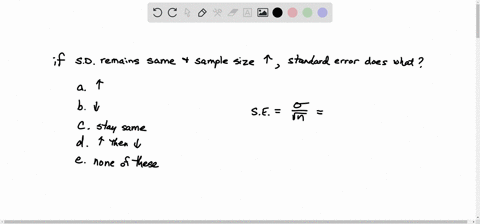 if S.D. remains same + sample size ↑, standard error does what?
a. ↑
b. ↓
c. stay same
d. ↑ then ↓
e. none of these
S.E. = σ/√n =